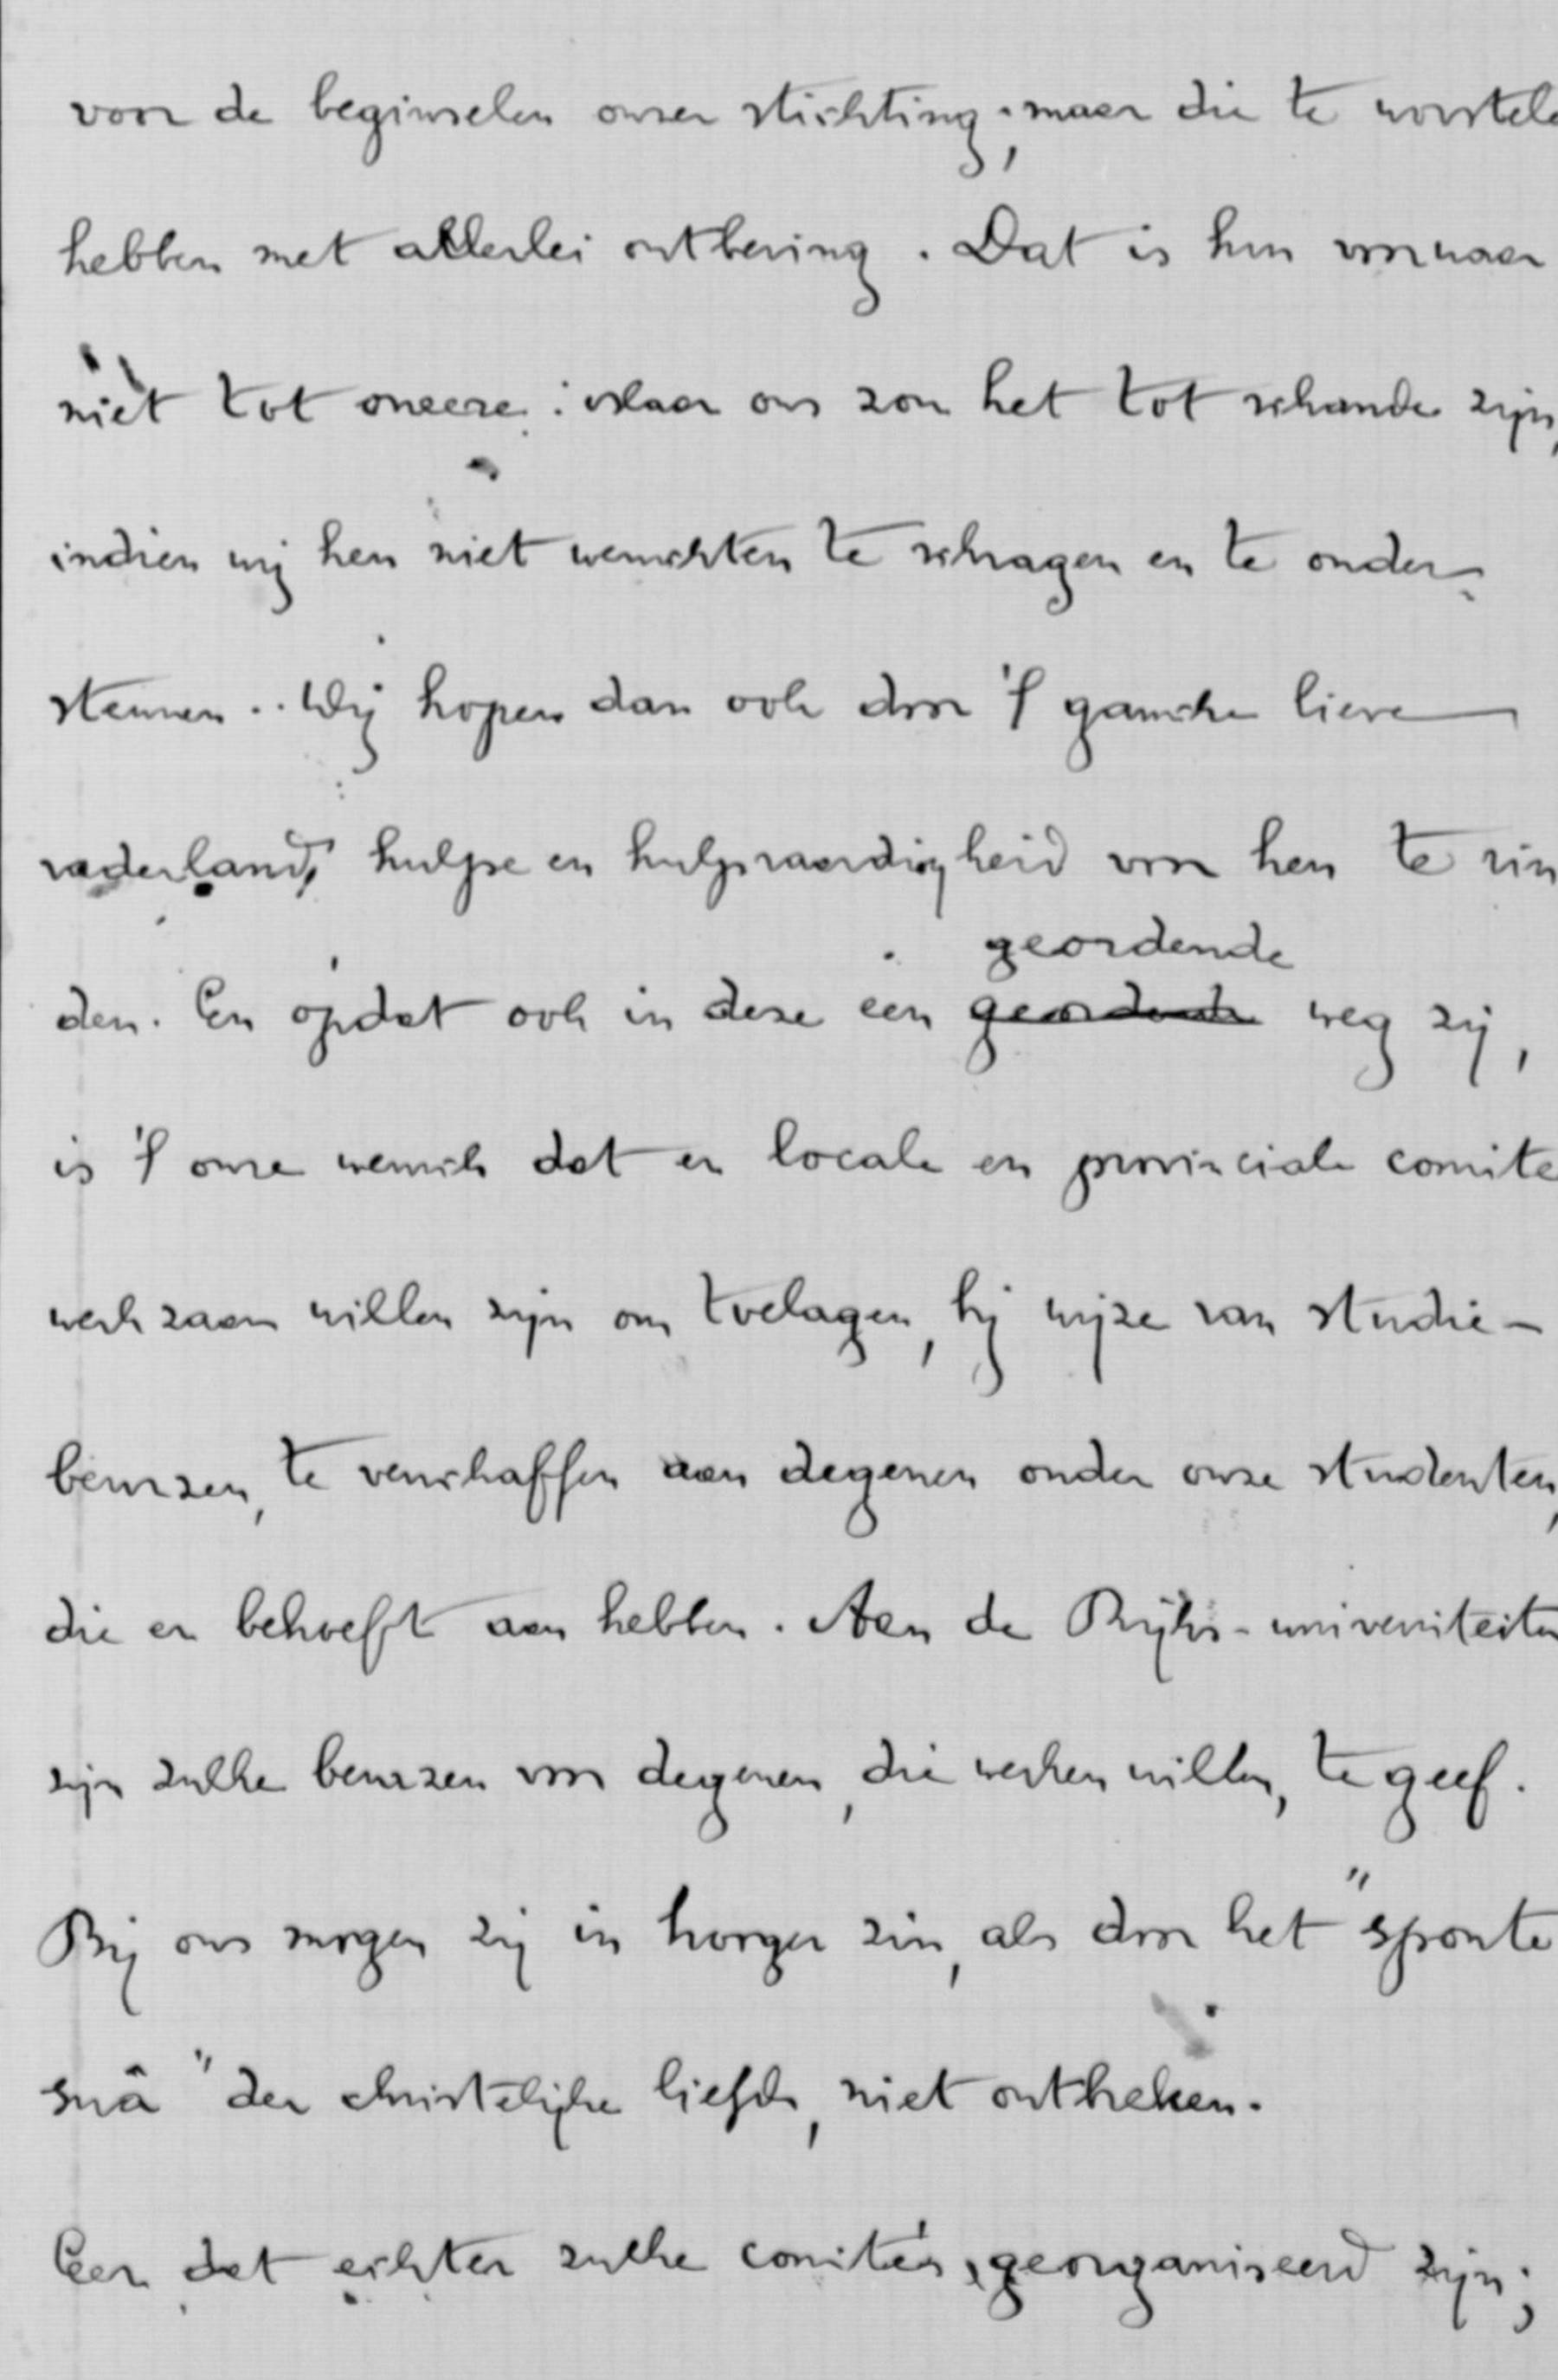 voor de beginselen onzer stichting; maar die te worstele
hebben met allerlei ontbering. Dat is hun voorwaar
niet tot oneere: maar ons zou het tot schande zijn,
indien wij hen niet wenschten te schragen en te onder-
steunen.. Wij hopen dan ook door 't gansche lieve
vaderland, hulpe en hulpvaardigheid voor hen te vin
geordende
den. En opdat ook in deze een geordende weg zij,
is 't onze wensch dat er locale en provinciale comite
werkzaam willen zijn om toelagen, bij wijze van studie-
beurzen, te verschaffen aan degenen onder onze studenten,
die er behoeft aan hebben. Aan de Rijks-universiteiten
zijn zulke beurzen voor degenen, die werken willen, te geef.
Bij ons mogen zij in hooger zin, als door het "sponte
suâ" der christelijke liefde, niet ontbreken.
Eer dat echter zulke comités, georganiseerd zijn;